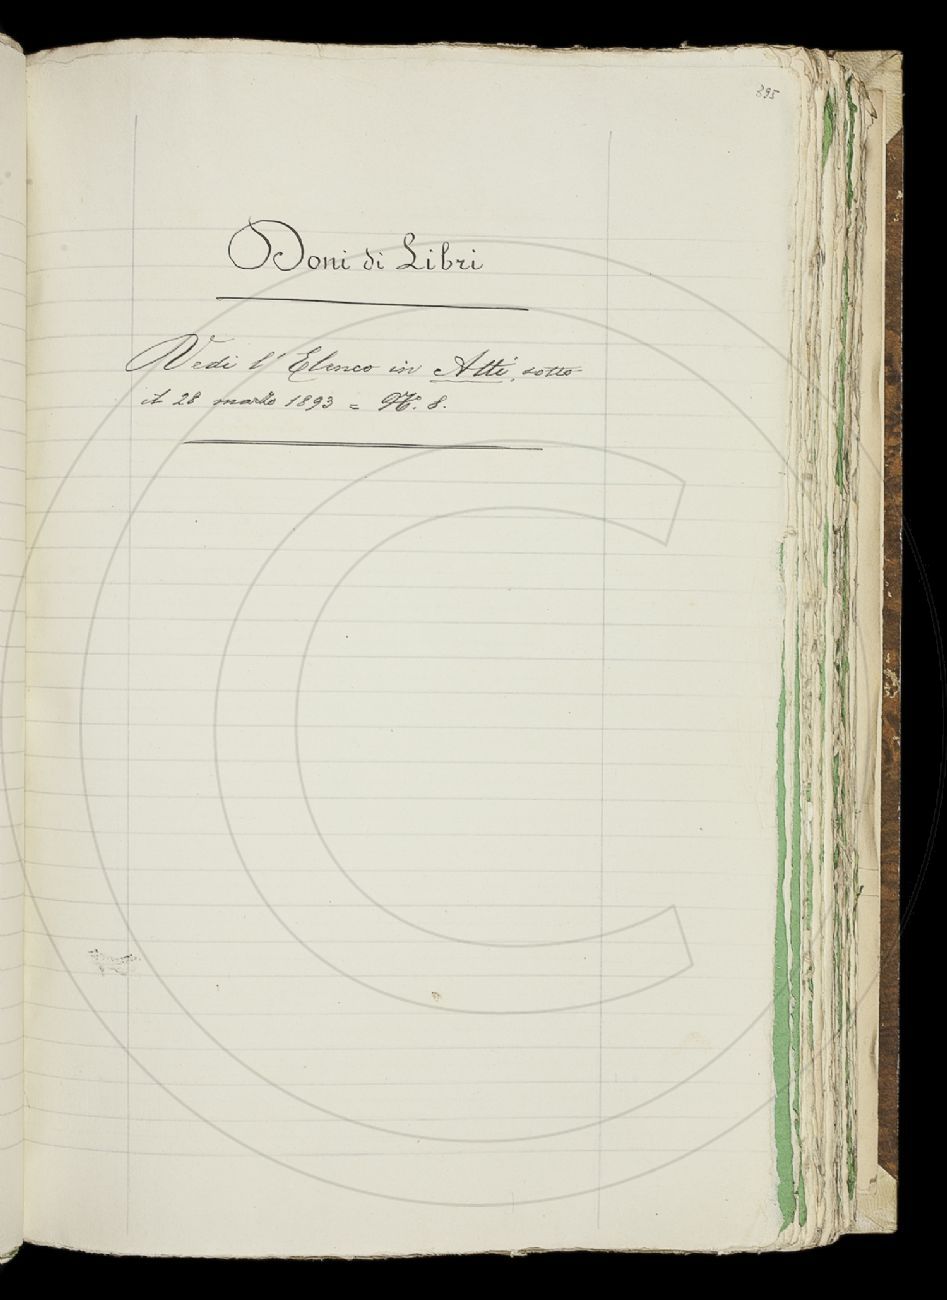 895
Doni di Libri
Vedi l'Elenco in Atti, sotto
il 28 marzo 1893 = N. 8.